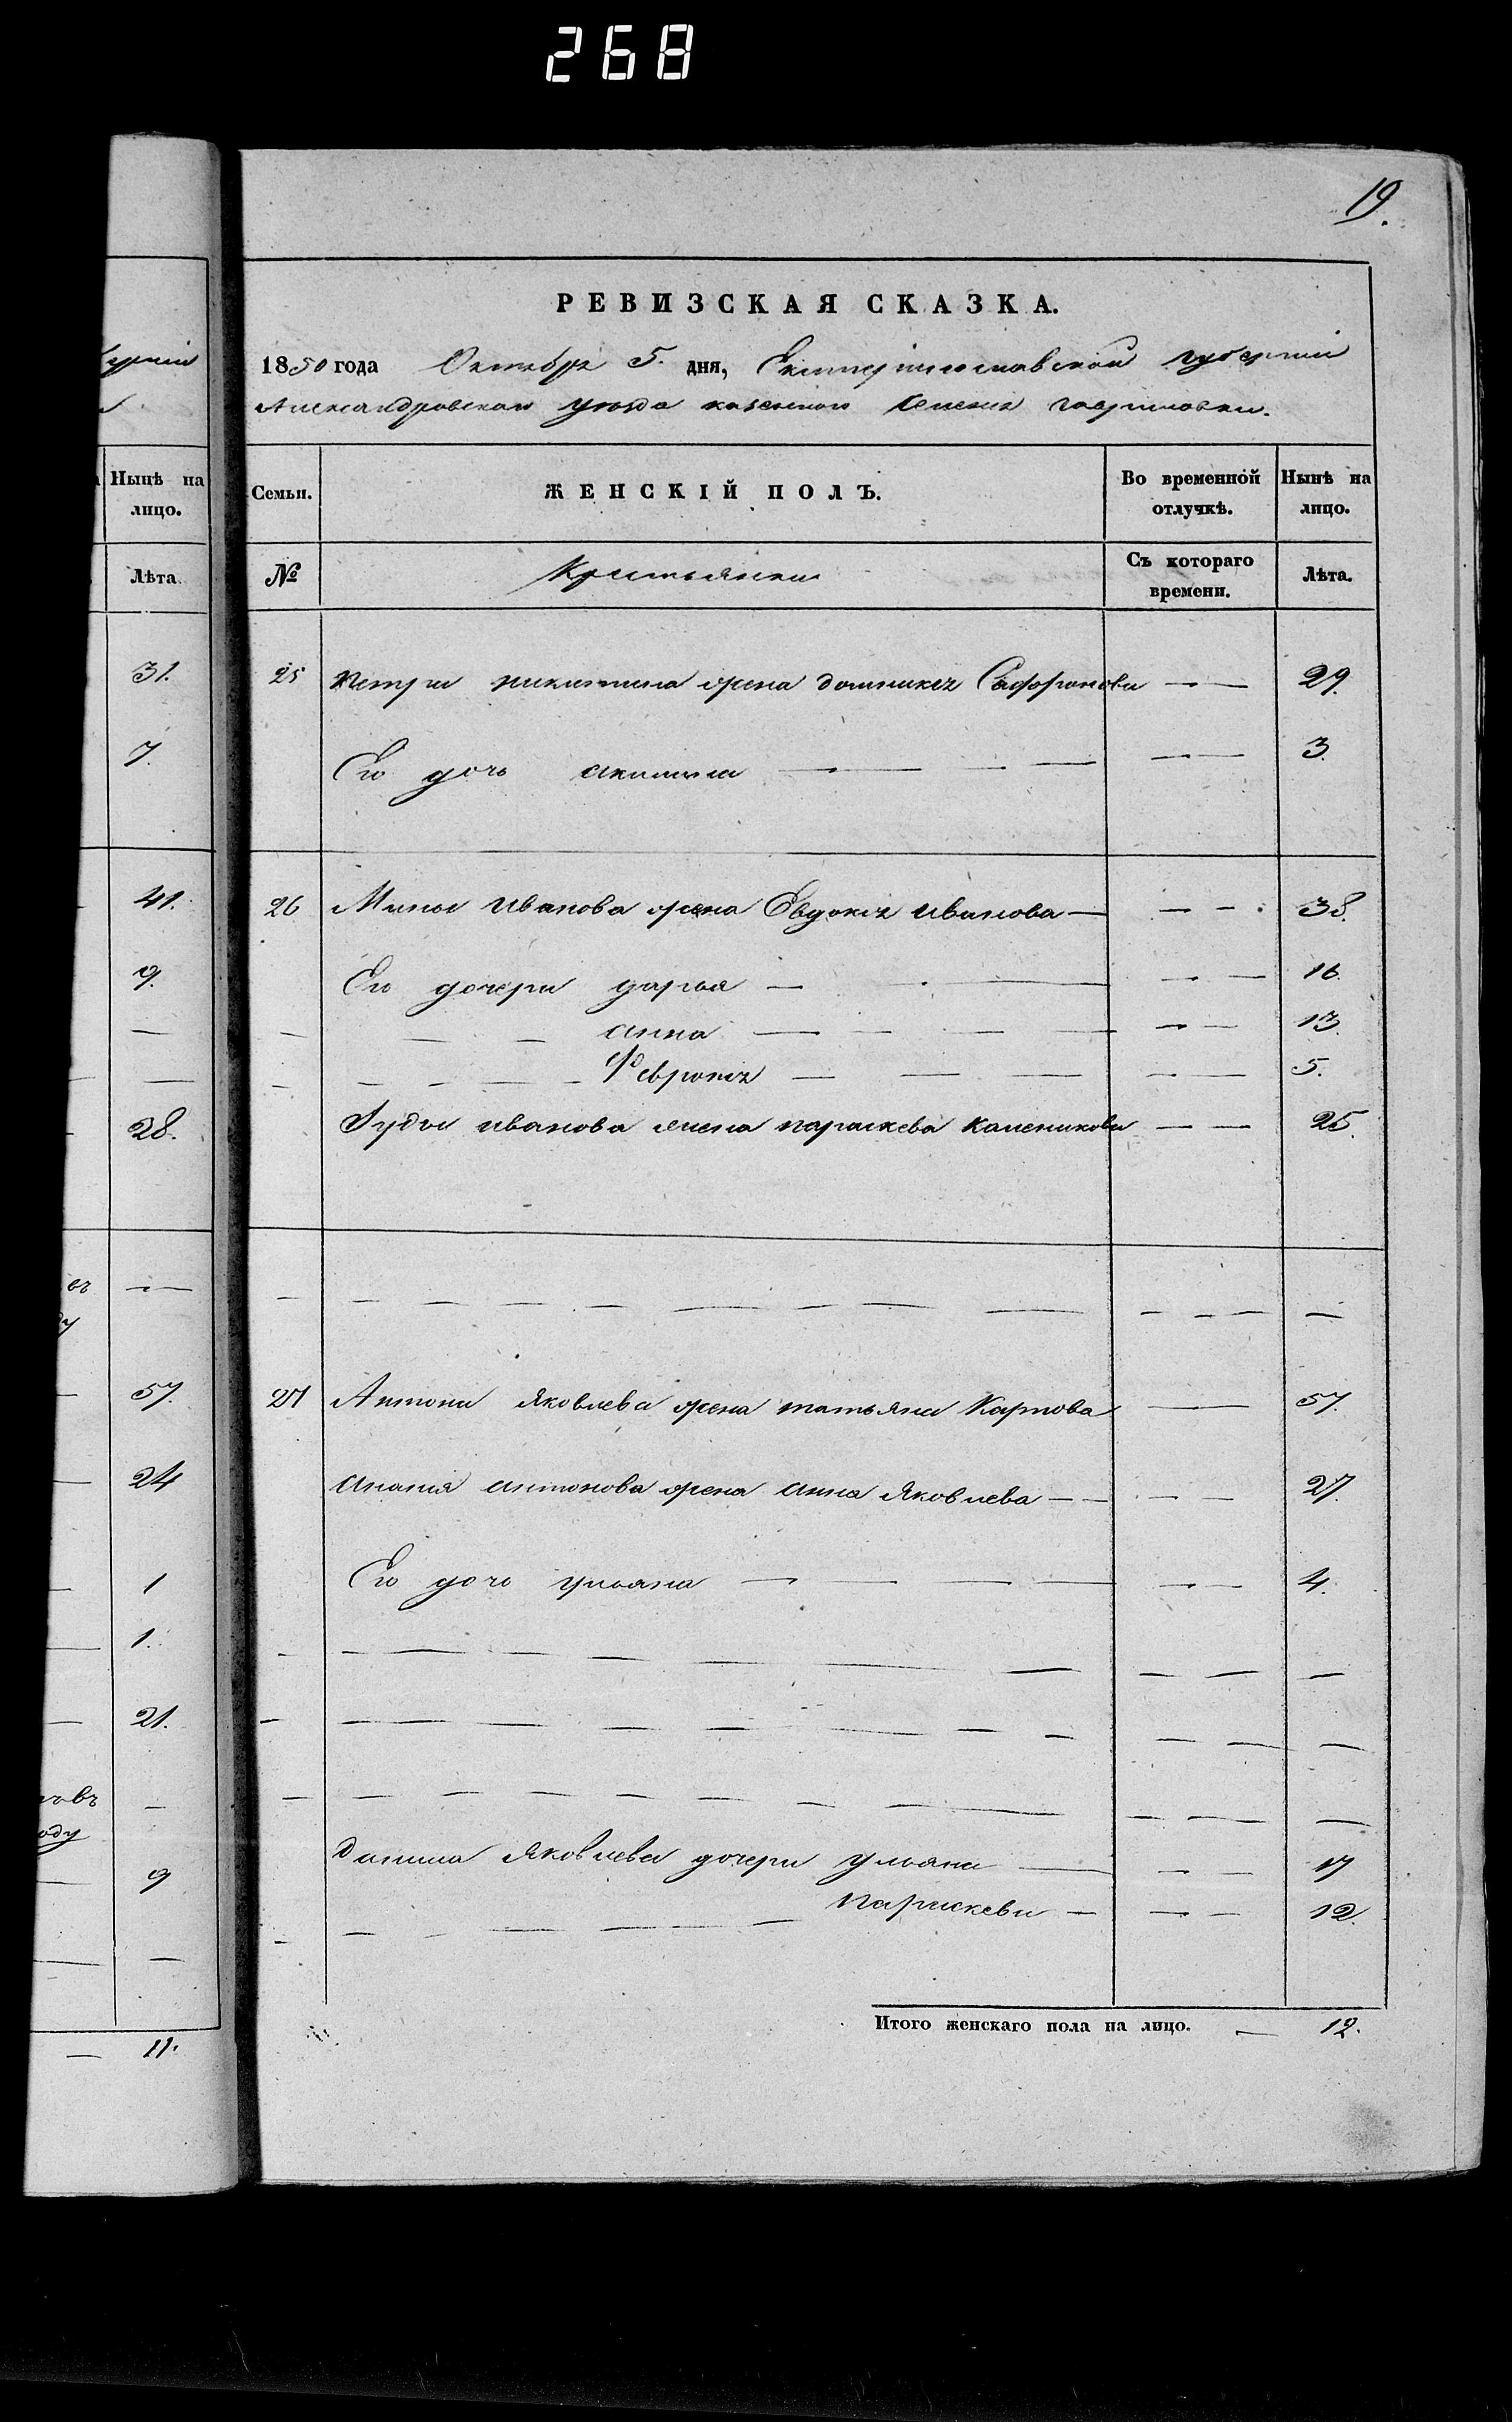 268
19.
РЕВИЗСКАЯ СКАЗКА.
1850 года Октября 5. дня, Екатеринославской губернии
Александровскаго уезда казенного селения гавриловки.
Нынѣ на лицо.
Семьи.
ЖЕНСКІЙ ПОЛЪ.
Во временной отлучкѣ.
Нынѣ на лицо.
Лѣта.
№
Крестьянки
Съ котораго времени.
Лѣта.
31. 25 петра никитина жена домникия Сафронова — — 29.
7. Его дочь акилина — — — — — 3.
41. 26 Мины Иванова жена Евдокия иванова — — - 38.
9. Его дочери дарья — — — — 16.
— — — — анна — — — — — — 13
— — — — — — Феврония — — — — — 5.
28. иванова жена параскева каленикова — — 25.
въ — — — — — — — — — — — — — —
57. 27 Антона Яковлева жена татьяна Карпова — 57.
24 анания антонова жена анна Яковлева — — — — 27.
1 Его дочь ульяна — — — — — — 4.
1. — — — — — — — — — — —
21. — — — — — — — — — — — —
— — — — — — — — — — — — —
оду
9 данила Яковлева дочери ульяна — — — 17
— — — — — — параскева — — — 12.
11.
Итого женскаго пола на лицо. — 12.